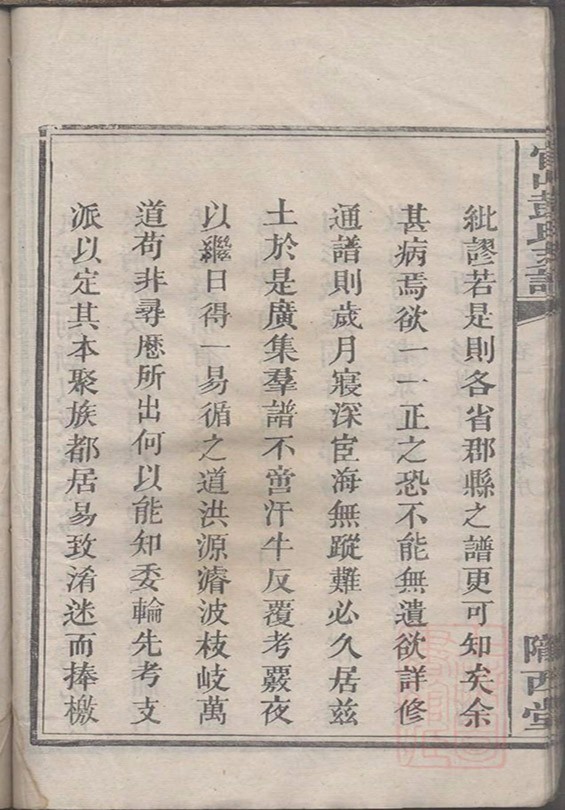 彭氏支譜
隴西堂
紕謬若是則各省郡縣之譜更可知矣余
甚病焉欲一一正之恐不能無遺欲詳修
通譜則歲月寢深宦海無蹤難必久居兹
土於是廣集羣譜不啻汗牛反覆考覈夜
以繼日得一易循之道洪源濬波枝岐萬
道苟非尋厯所出何以能知委輪先考支
派以定其本聚族都居易致淆迷而捧檄